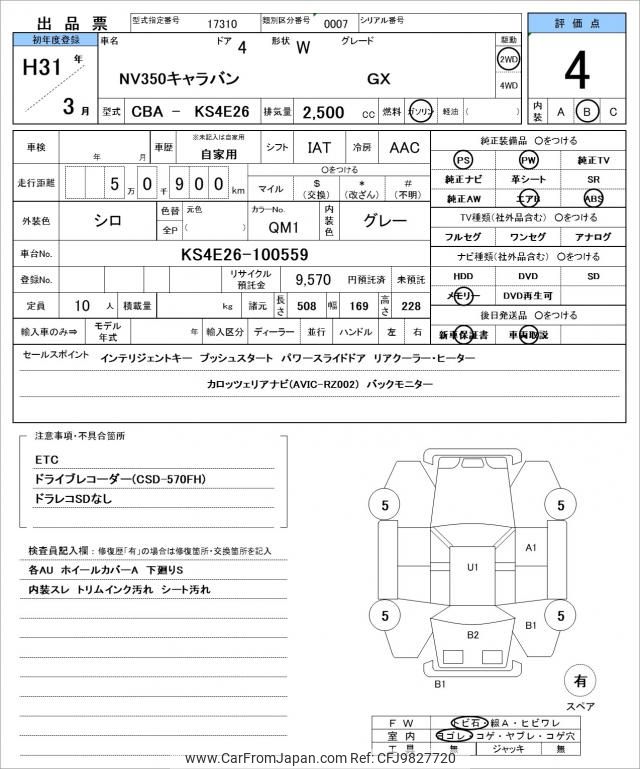 出 品 票
型式指定番号 17310 類別区分番号 0007 シリアル番号
評 価 点
4
内装 A B C
初年度登録
H31 年
3 月
車名 ドア 4 形状 W グレード
NV350キャラバン GX
駆動
2WD
4WD
型式 CBA - KS4E26 排気量 2,500 cc 燃料 ガソリン 軽油 ( )
車検 年 月 車歴 ※未記入は自家用 自家用 シフト IAT 冷房 AAC
走行距離 5 万 0 千 9 0 0 km
〇をつける
マイル $ (交換) * (改ざん) # (不明)
外装色 シロ 色替 元色 全P ( カラーNo. QM1 内装色 グレー
車台No. KS4E26-100559
登録No. リサイクル預託金 9,570 円預託済 未預託
定員 10 人 積載量 kg 諸元 長さ 508 幅 169 高さ 228
輸入車のみ⇒ モデル年式 年 輸入区分 ディーラー 並行 ハンドル 左 右
純正装備品 〇をつける
PS PW 純正TV
純正ナビ 革シート SR
純正AW エアB ABS
TV種類(社外品含む) 〇をつける
フルセグ ワンセグ アナログ
ナビ種類(社外品含む) 〇をつける
HDD DVD SD
メモリー DVD再生可
後日発送品 〇をつける
新車保証書 車両取説
セールスポイント インテリジェントキー プッシュスタート パワースライドドア リアクーラー・ヒーター
カロッツェリアナビ(AVIC-RZ002) バックモニター
注意事項・不具合箇所
ETC
ドライブレコーダー(CSD-570FH)
ドラレコSDなし
検査員記入欄 : 修復歴「有」の場合は修復箇所・交換箇所を記入
各AU ホイールカバーA 下廻りS
内装スレ トリムインク汚れ シート汚れ
5
5
A1
U1
5
5
B1
B2
B1
有
スペア
F W トビ石・線A・ヒビワレ
室 内 ヨゴレ・コゲ・ヤブレ・コゲ穴
工 具 無 ジャッキ 無
www.CarFromJapan.com Ref: CFJ9827720